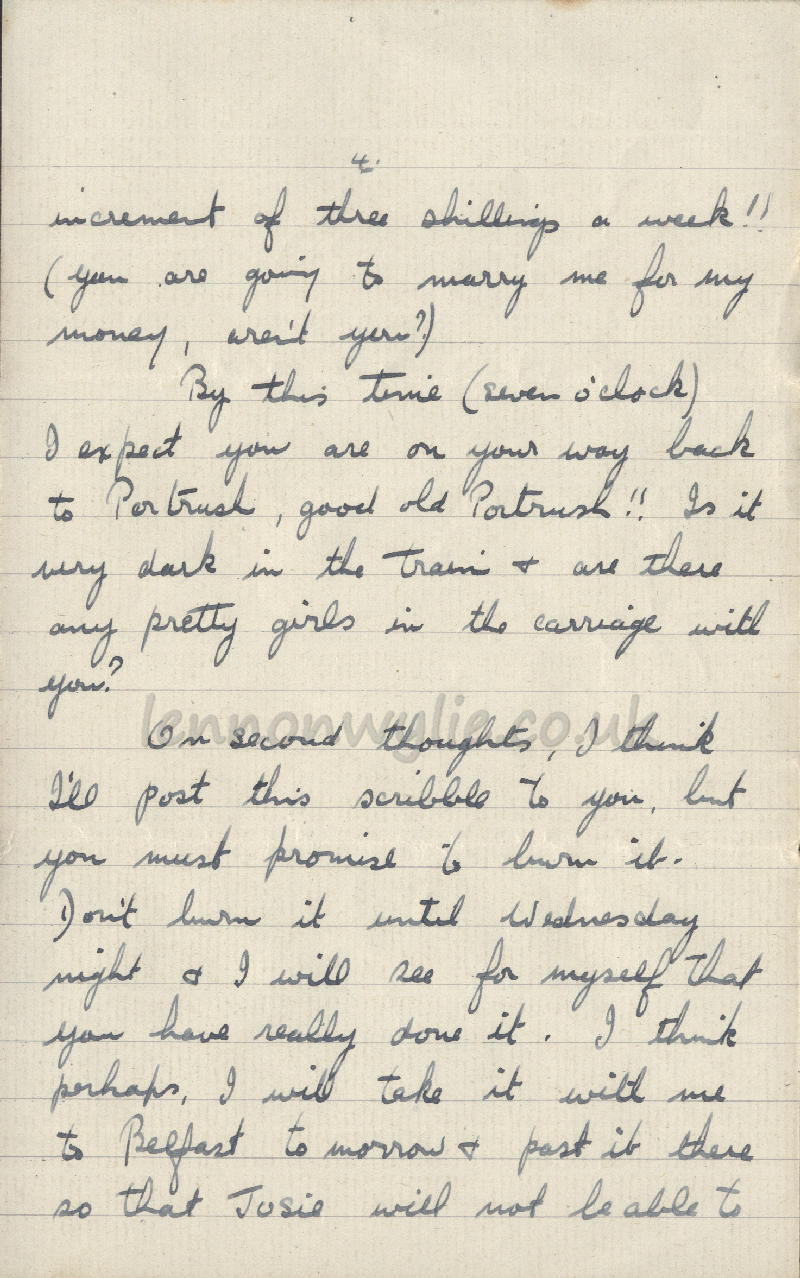 4.
increment of three shillings a week!!
(you are going to marry me for my
money, aren't you?)
By this time (seven o'clock)
I expect you are on your way back
to Portrush, good old Portrush!! Is it
very dark in the train & are there
any pretty girls in the carriage with
you?
lennonwylie.co.uk
On second thoughts, I think
I'll post this scribble to you, but
you must promise to burn it.
Don't burn it until Wednesday
night & I will see for myself that
you have really done it. I think
perhaps, I will take it with me
to Belfast to morrow & post it there
so that Josie will not be able to